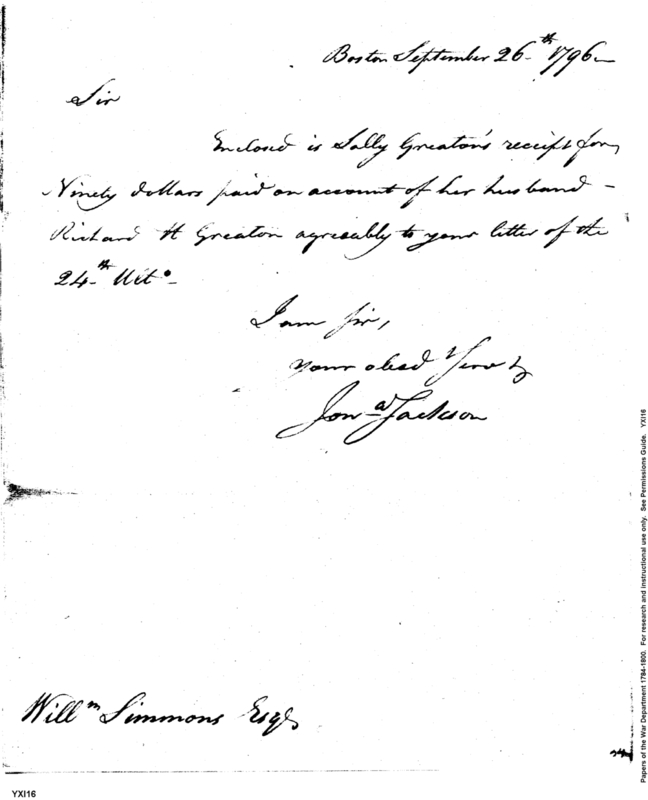 Boston September 26th 1796
Sir
Enclosed is Sally Greaton's receipt for
Ninety dollars paid on account of her husband -
Richard H Greaton agreeably to your letter of the
24th Ulto.
I am Sir,
your obed Servt
Jona Jackson
Willm Simmons Esqr
YXI16
Papers of the War Department 1784-1800. For research and instructional use only. See Permissions Guide. YXI16